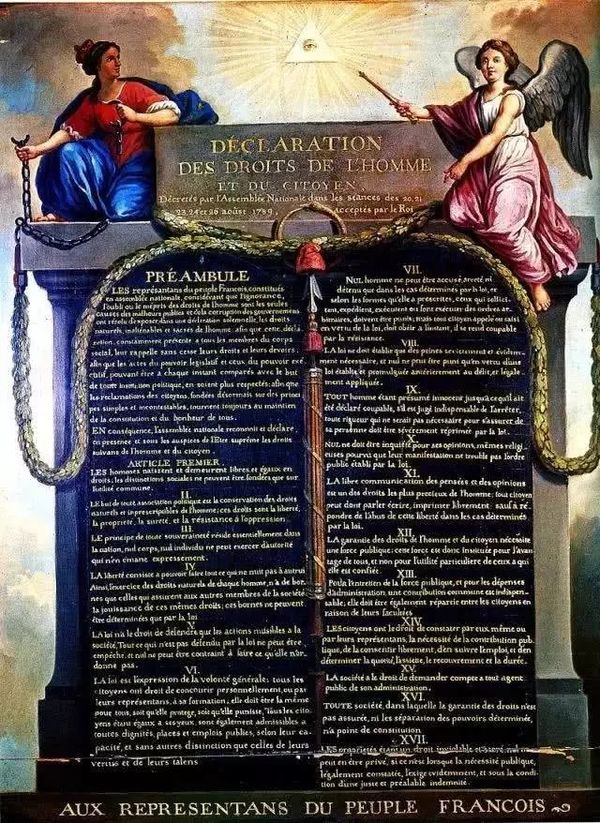 DÉCLARATION
DES DROITS DE L'HOMME
ET DU CITOYEN,
Décrétés par l'Assemblée Nationale dans les séances des 20, 21
23, 24 et 26 aoúst 1789, acceptés par le Roi
PRÉAMBULE
LES représentans du peuple François, constitués
en assemblée nationale, considérant que l'ignorance,
l'oubli ou le mépris des droits de l'homme sont les seules
causes des malheurs publics et de la corruption des gouvernemens
ont résolu d'exposer, dans une déclaration solemnelle, les droits
naturels, inaliénables et sacrés de l'homme; afin que cette décla
ration, constamment présente a tous les membres du corps
social, leur rappelle sans cesse leurs droits et leurs devoirs;
afin que les actes du pouvoir legislatif et ceux du pouvoir exé
cutif, pouvant être à chaque instant comparés avec le but
de toute institution politique, en soient plus respectés; afin que
les reclamations des citoyens, fondées désormais sur des princi
pes simples et incontestables, tournent toujours au maintien
de la constitution et du bonheur de tous.
EN conséquence, l'assemblée nationale reconnoit et déclare
en presence et sous les auspices de l'Etre suprême les droits
suivans de l'homme et du citoyen.
ARTICLE PREMIER.
LES hommes naissent et demeurent libres et égaux en
droits; les distinctions sociales ne peuvent être fondées que sur
l'utilité commune.
II.
LE but de toute association politique est la conservation des droits
naturels et inprescriptibles de l'homme; ces droits sont la liberté,
la propriété, la sureté, et la résistance à l'oppression.
III.
LE principe de toute souveraineté réside essentiellement dans
la nation, nul corps, nul individu ne peut exercer d'autorité
qui n'en émane expressement.
IV.
LA liberté consiste a pouvoir faire tout ce qui ne nuit pas à autrui
Ainsi, l'exercice des droits naturels de chaque homme, n'a de bor-
nes que celles qui assurent aux autres membres de la société
la jouissance de ces mêmes droits; ces bornes ne peuvent
être déterminées que par la loi
V.
LA loi n'a le droit de défendre que les actions nuisibles a la
société. Tout ce qui n'est pas défendu par la loi ne peut être
empêché, et nul ne peut être contraint à faire ce qu'elle n'or-
donne pas.
VI.
LA loi est l'expression de la volonté générale; tous les
citoyens ont droit de concourir personnellement, ou par
leurs représentans, à sa formation; elle doit être la même
pour tous, soit qu'elle protege, soit qu'elle punisse. Tous les cito-
yens étant égaux a ses yeux, sont également admissibles à
toutes dignités, places et emplois publics, selon leur ca-
pacité, et sans autres distinction que celles de leurs
vertus et de leurs talens
VII.
NUL homme ne peut être accusé, arreté ni
détenu que dans les cas déterminés par la loi, et
selon les formes qu'elle a prescrites, ceux qui sollici-
tent, expédient, exécutent ou font exécuter des ordres ar-
bitraires, doivent être punis; mais tout citoyen appelé ou saisi
en vertu de la loi, doit obéir a l'instant, il se rend coupable
par la résistance.
VIII.
LA loi ne doit établir que des peines strictement et évidem-
ment nécessaire, et nul ne peut être puni qu'en vertu d'une
loi établie et promulguée antérierement au délit, et légale-
ment appliquée.
IX.
TOUT homme étant présumé innocent jusqu'a ce qu'il ait
été déclaré coupable, s'il est jugé indispensable de l'arrêter,
toute rigueur qui ne serait pas nécessaire pour s'assurer de
sa personne doit être sévèrement réprimée par la loi.
X.
NUL ne doit être inquiété pour ses opinions, mêmes religi
euses pourvu que leur manifestation ne trouble pas l'ordre
public établi par la loi.
XI.
LA libre communication des pensées et des opinions
est un des droits les plus precieux de l'homme; tout citoyen
peut donc parler écrire, imprimer librement: sauf à ré-
pondre de l'abus de cette liberté dans les cas déterminés
par la loi.
XII.
LA garantie des droits de l'homme et du citoyen nécessite
une force publique; cette force est donc instituée pour l'avan
tage de tous, et non pour l'utilité particuliere de ceux a qui
elle est confiée.
XIII.
Pour l'entretien de la force publique, et pour les dépenses
d'administration, une contribution commune est indispen-
sable; elle doit être également répartie entre les citoyens en
raison de leurs facultées
XIV.
LES citoyens ont le droit de constater par eux même ou
par leurs représentans, la nécessité de la contribution pub-
lique, de la consentir librement, d'en suivre l'emploi, et d'en
déterminer la quotité, l'assiette, le recouvrement et la durée.
XV.
LA société a le droit de demander compte a tout agent
public de son administration.
XVI.
TOUTE société, dans laquelle la garantie des droits n'est
pas assurée, ni les séparation des pouvoirs déterminée,
n'a point de constitution.
XVII.
LES propriétés étant un droit inviolable et sacré, nul ne
peut en être privé, si ce n'est lorsque la nécessité publique,
légalement constatée, l'exige evidemment, et sous la condi
tion d'une juste et préalable indemnité.
AUX REPRESENTANS DU PEUPLE FRANCOIS